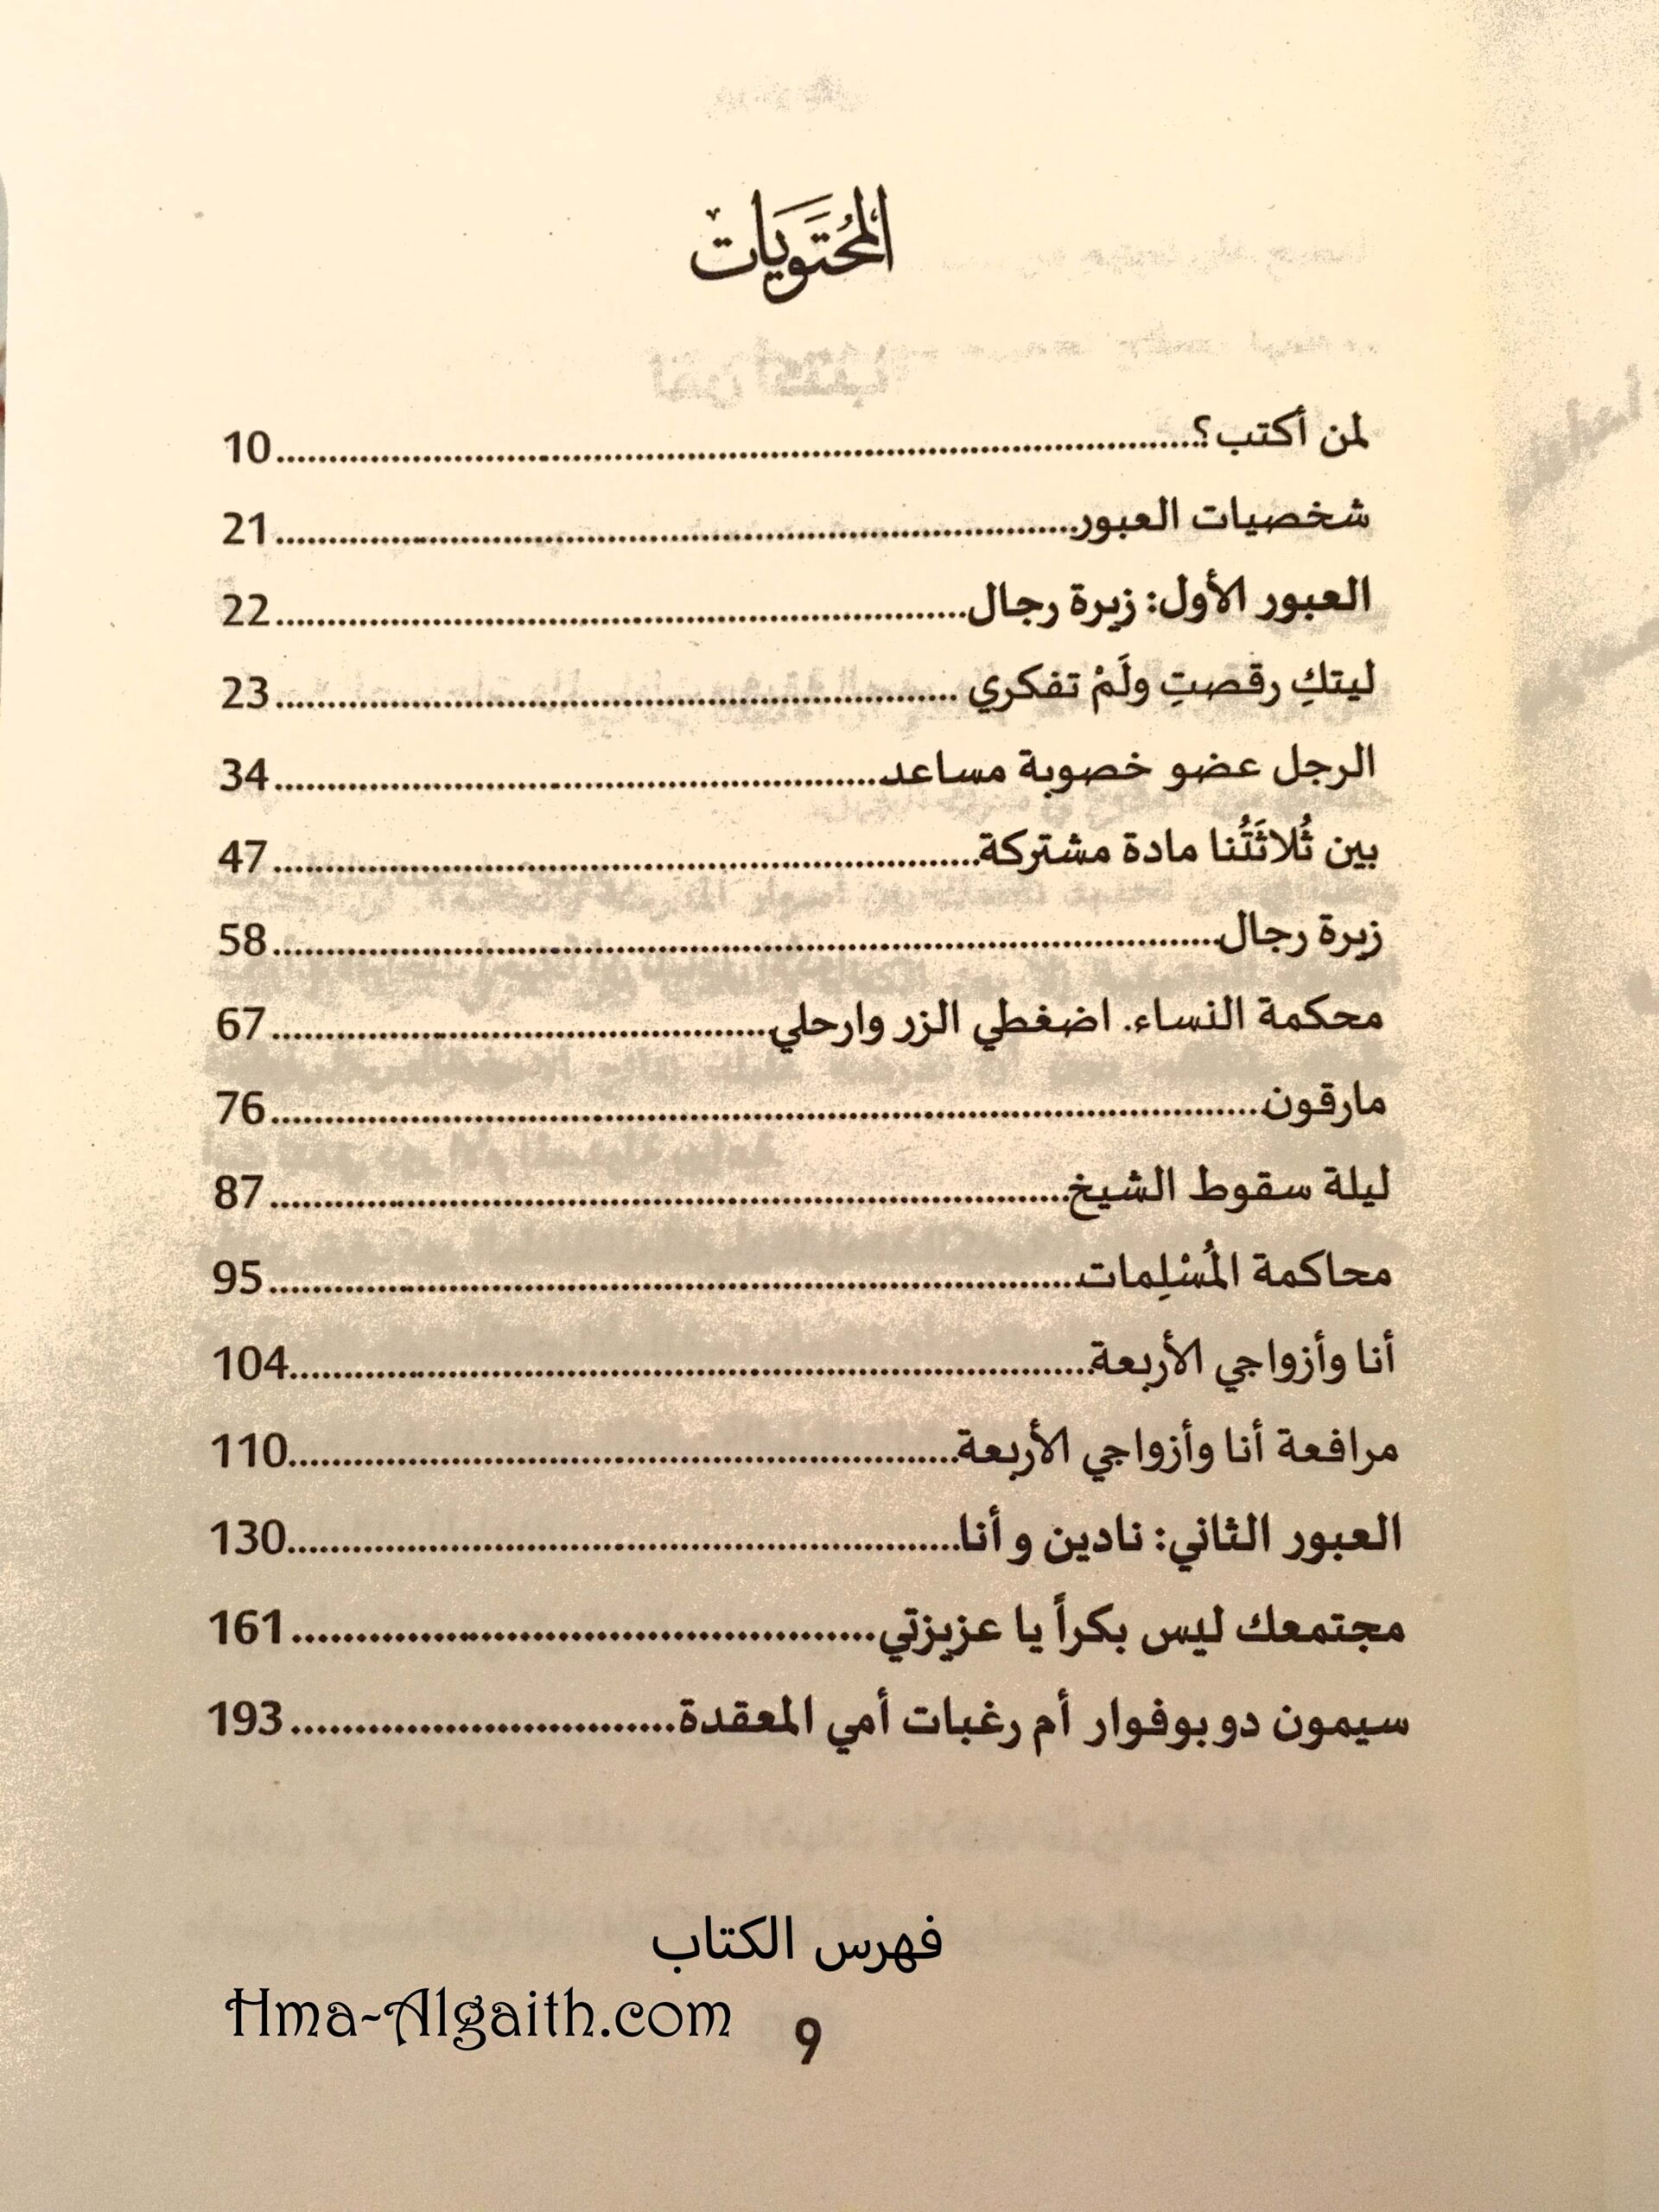 المُحتَويات
لمن أكتب؟..........10
شخصيات العبور..........21
العبور الأول: زيرة رجال..........22
ليتكِ رقصتِ ولَمْ تفكري..........23
الرجل عضو خصوبة مساعد..........34
بين ثُلاثَتُنا مادة مشتركة..........47
زيرة رجال..........58
محكمة النساء. اضغطي الزر وارحلي..........67
مارقون..........76
ليلة سقوط الشيخ..........87
محاكمة المُسْلِمات..........95
أنا وأزواجي الأربعة..........104
مرافعة أنا وأزواجي الأربعة..........110
العبور الثاني: نادين و أنا..........130
مجتمعك ليس بكراً يا عزيزتي..........161
سيمون دو بوفوار أم رغبات أمي المعقدة..........193
فهرس الكتاب
Hma-Algaith.com
9